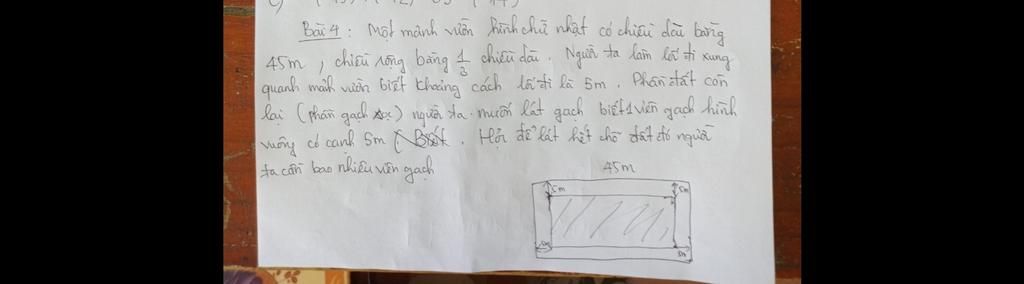 Bài 4 : Một mảnh vườn hình chữ nhật có chiều dài bằng
45m , chiều rộng bằng 1/3 chiều dài . Người ta làm lối đi xung
quanh mảnh vườn biết khoảng cách lối đi là 5m . Phần đất còn
lại (phần gạch ) người ta muốn lát gạch biết 1 viên gạch hình
vuông có cạnh 5m . Hỏi để lát hết chỗ đất đó người
ta cần bao nhiêu viên gạch
45m
5m 5m
5m 5m